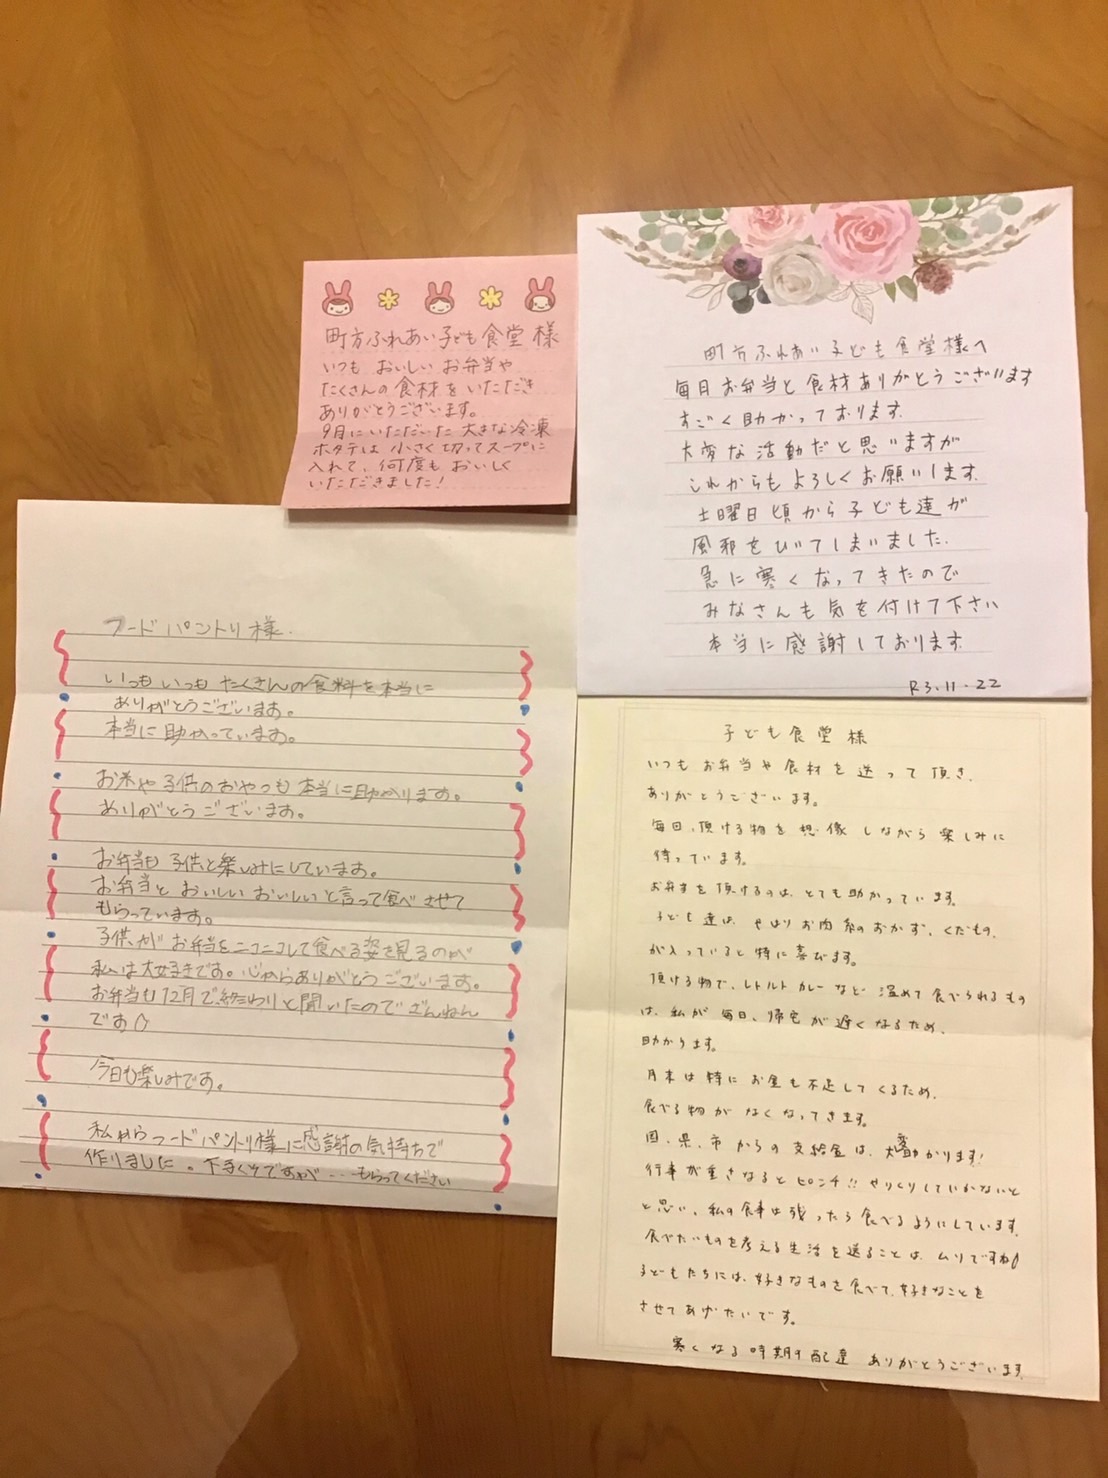 町方ふれあい子ども食堂 様
いつも おいしい お弁当や
たくさんの食材をいただき
ありがとうございます。
9月にいただいた 大きな冷凍
ホタテは 小さく切ってスープに
入れて、何度も おいしく
いただきました!
町方ふれあい子ども食堂様へ
毎日お弁当と食材ありがとうございます
すごく助かっております.
大変な活動だと思いますが
これからもよろしくお願いします.
土曜日頃から子ども達が
風邪をひいてしまいました.
急に寒くなってきたので
みなさんも気を付けて下さい
本当に感謝しております.
R3.11.22
フードパントリ様.
いつもいつも たくさんの食料を本当に
ありがとうございます。
本当に助かっています。
お米や子供のおやつも本当に助かります。
ありがとうございます。
お弁当も子供と楽しみにしています。
お弁当と おいしい おいしいと言って食べさせて
もらっています。
子供がお弁当をニコニコして食べる姿を見るのが
私は大好きです。心からありがとうございます。
お弁当も12月で終わりと聞いたのでざんねん
です
今日も楽しみです。
私からフードパントリ様に感謝の気持ちで
作りました。下手くそですが…もらってください
子ども食堂様
いつもお弁当や食材を送って頂き、
ありがとうございます。
毎日、頂ける物を想像しながら楽しみに
待っています。
お弁当を頂けるのは、とても助かっています。
子ども達は、やはりお肉系のおかず、くだもの、
が入っていると特に喜びます。
頂ける物で、レトルトカレーなど温めて食べられるもの
は、私が毎日、帰宅が遅くなるため、
助かります。
月末は特にお金も不足してくるため、
食べる物がなくなってきます。
国、県、市からの支給金は、大変助かります!
行事が重さなるとピンチ!! やりくりしていかないと
と思い、私の食事は残ったら食べるようにしています。
食べたいものを考える生活を送ることは、ムリですね
子どもたちには、好きなものを食べて、好きなことを
させてあげたいです。
寒くなる時期の配達 ありがとうございます.